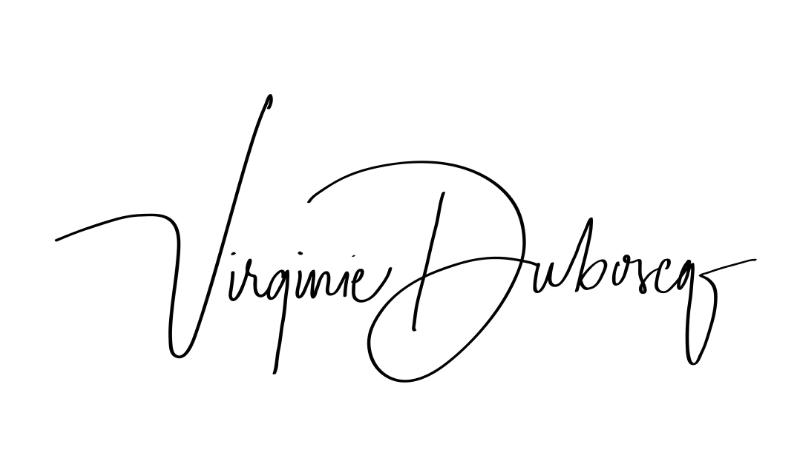 Virginie Duboscq